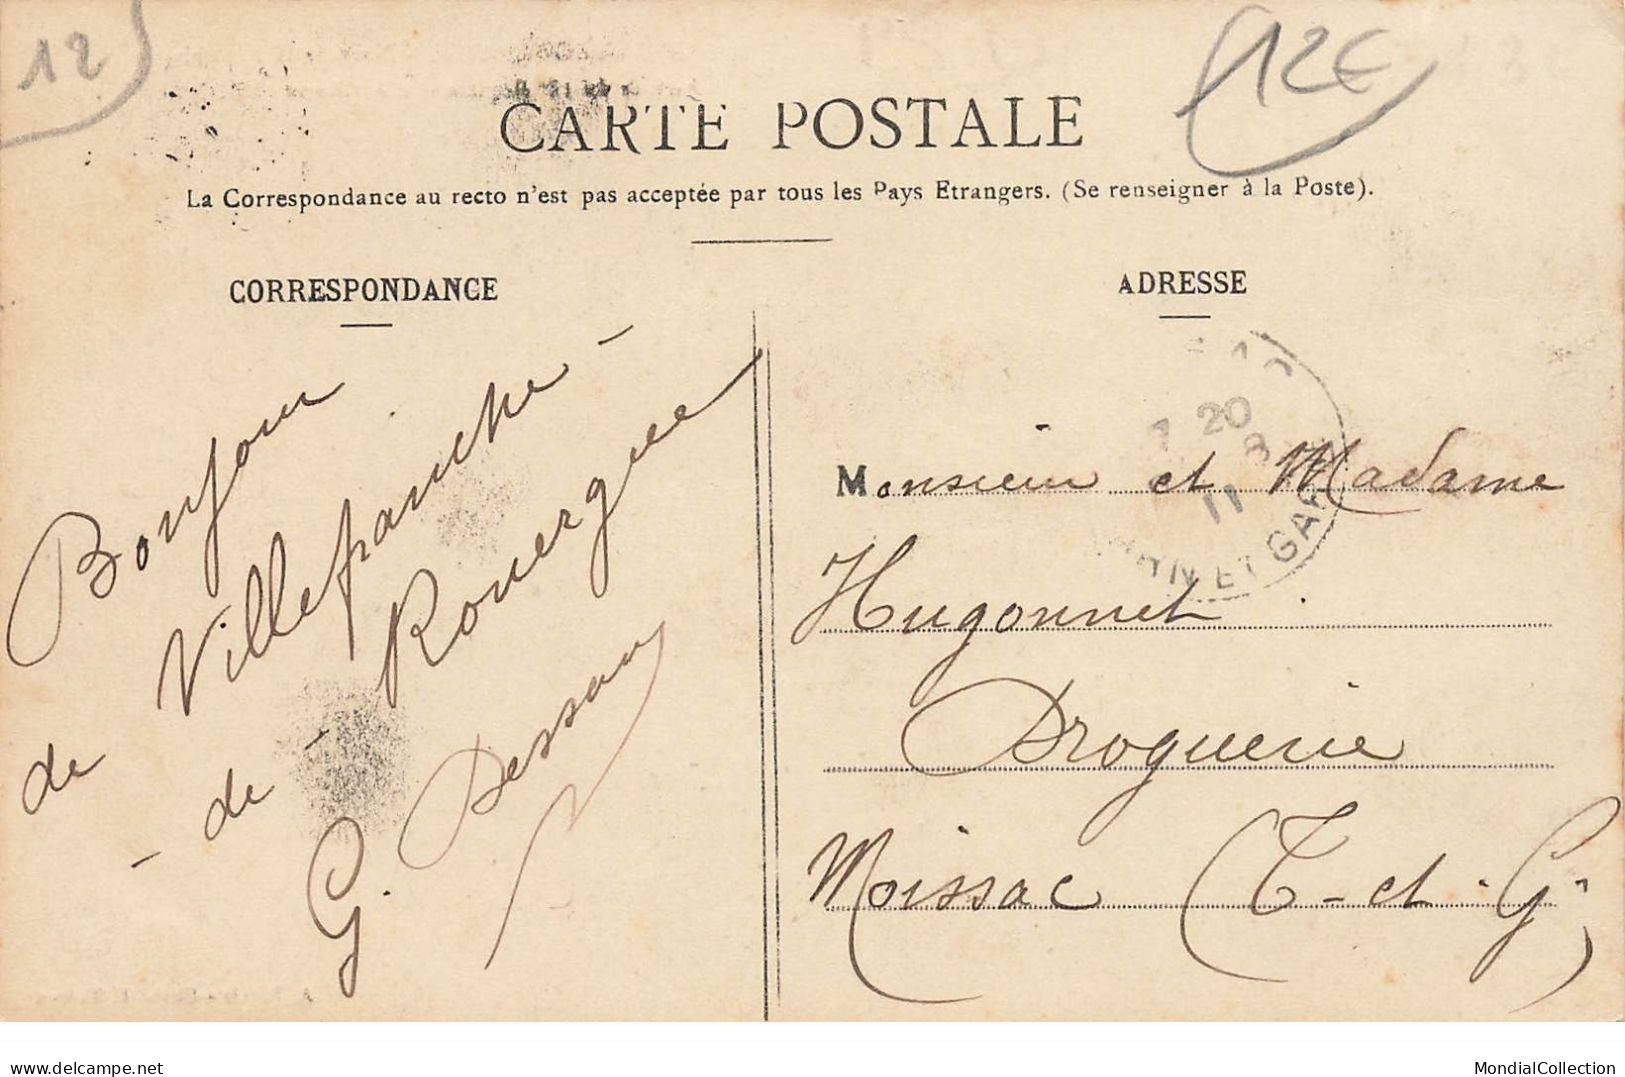 12
12€
CARTE POSTALE
La Correspondance au recto n'est pas acceptée par tous les Pays Etrangers. (Se renseigner à la Poste).
CORRESPONDANCE
Bonjour
de Villefranche -
- de - Rouergue
G. Dessaux
ADRESSE
20
8
11
ET GAR
Monsieur et Madame
Hugonnet
Droguerie
Moissac (T-et-G-)
delcampe.net
MondialCollection